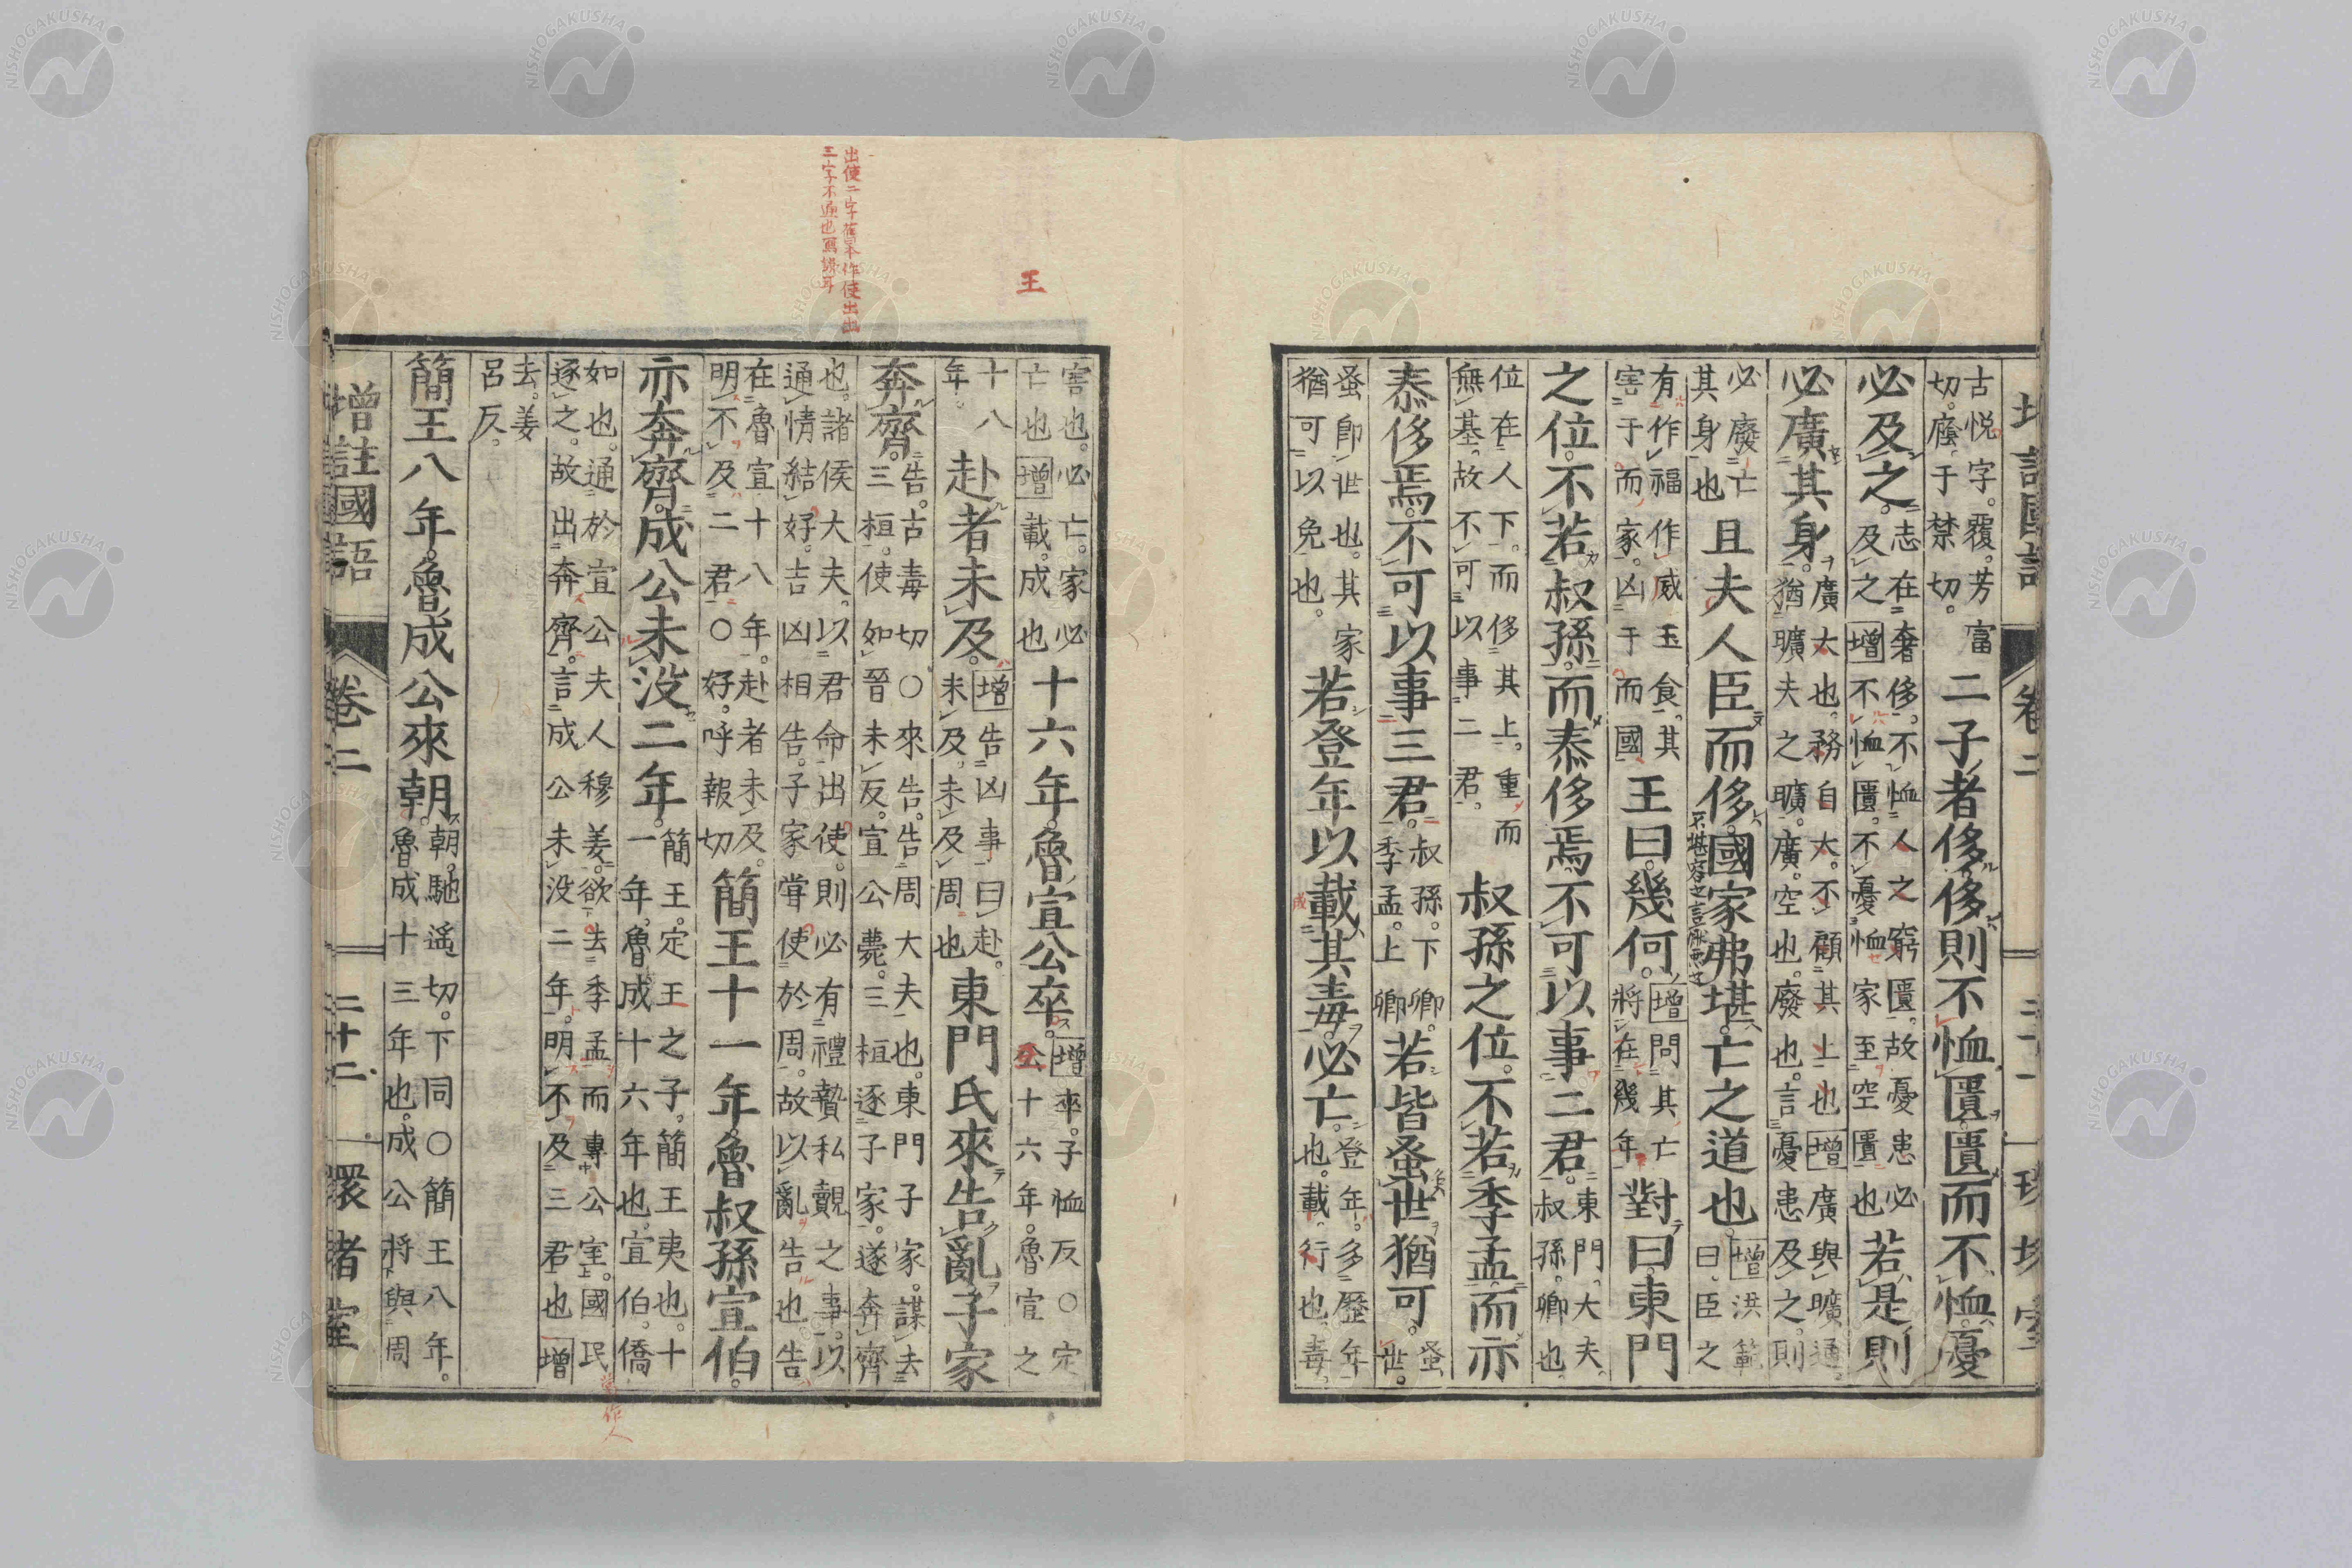 卷二
古悅字。覆。芳富
切。廕。于禁切。
二子者侈。侈則不恤匱。匱而不恤。憂
必及之。
志在奢侈。不恤人之窮匱。故憂患必
及之增不恤匱。不憂恤家至空匱也
若是則
必廣其身。
廣大也。務自大。不顧其上也增廣與曠通。
猶曠夫之曠。廣。空也。廢也。言憂患及之。則
必廢亡
其身也
且夫人臣而侈。國家弗堪。亡之道也。
增洪範
曰。臣之
有作福作威玉食。其
害于而家。凶于而國
王曰。幾何。
增問其亡
將在幾年
對曰。東門
之位。不若叔孫。而泰侈焉。不可以事二君。
東門。大夫。
叔孫。卿也。
位在人下。而侈其上。重而
無基。故不可以事二君。
叔孫之位。不若季孟。而亦
泰侈焉。不可以事三君。
叔孫。下卿。
季孟。上卿
若皆蚤世猶可。
蚤
世。
蚤即世也。其家
猶可以免也。
若登年以載其毒。必亡。
登年。多歷年
也。載。行也。毒。
王
出使二字舊本作使出出
三字不通也寫誤耳
害也。必亡。家必
亡也增載。成也
十六年。魯宣公卒。
增卒。子恤反○定
公十六年。魯宣之
十八
年。
赴者未及。
增告凶事曰赴。
未及。未及周也
東門氏來告亂。子家
奔齊。
告。古毒切○來告。告周大夫也。東門子家。謀去
三桓。使如晉未反。宣公薨。三桓逐子家。遂奔齊
也。諸侯大夫。以君命出使。則必有禮贄私覿之事。以
通情結好。吉凶相告。子家嘗使於周。故以亂告也告
在魯宣十八年。赴者未及。
明不及二君○好。呼報切
簡王十一年。魯叔孫宣伯。
亦奔齊。成公未没二年。
簡王。定王之子。簡王夷也。十
一年。魯成十六年也。宣伯。僑
如也。通於宣公夫人穆姜。欲去季孟而專公室。國民
逐之。故出奔齊。言成公未没二年。明不及三君也增
當作人
去。姜
呂反。
簡王八年。魯成公來朝。
朝。馳遙切。下同○簡王八年。
魯成十三年也。成公將與周
增註國語 卷二 二十二 環堵室
NISHOGAKUSHA